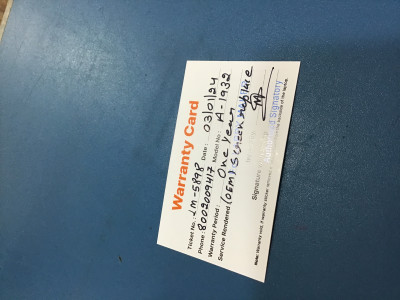 Warranty Card
Ticket No.: LM-5898 Date: 03/01/24
Phone: 8002009417 Model No: A-1932
Warranty Period: One Year
Service Rendered (OEM) Screen replace
Signature Authorised Signatory
Note: Warranty void, if warranty sticker